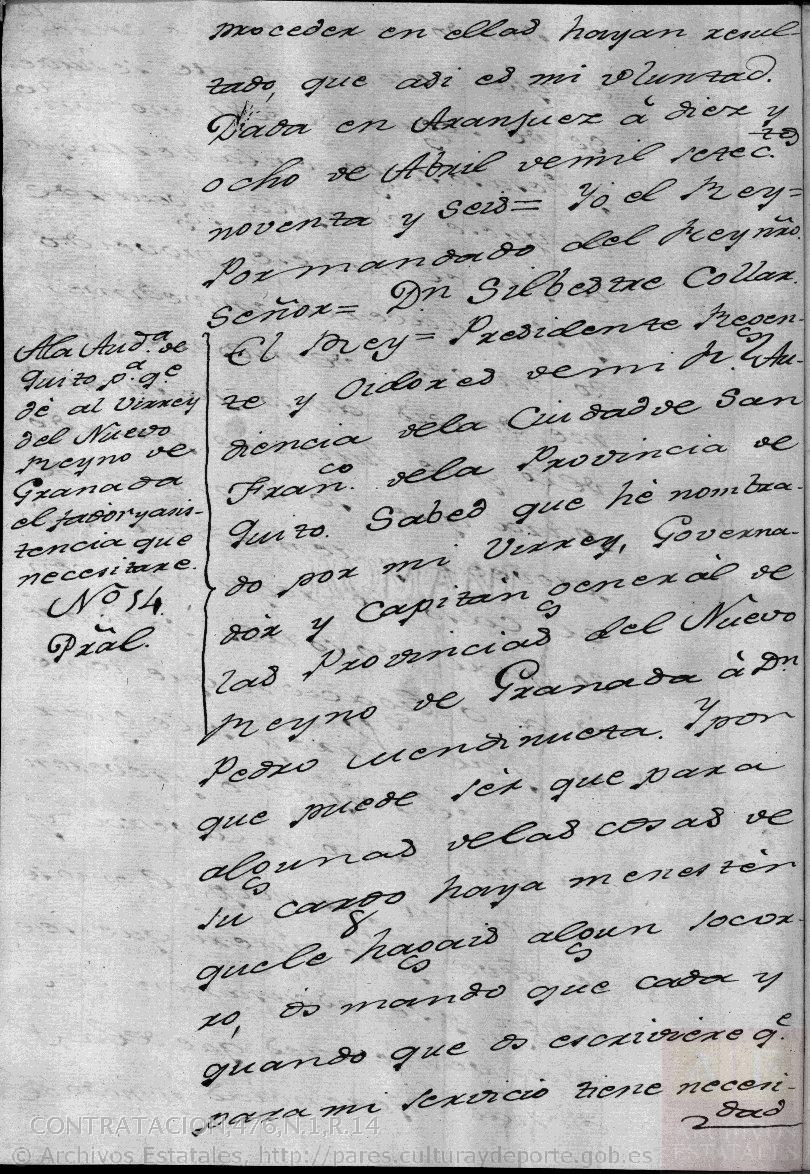 proceder en ellas hayan resul-
tado, que asi es mi voluntad.
Dada en Aranjuez à diez y
ocho de Abril de mil setec.tos
noventa y Seis= Yo el Rey=
Por mandado del Rey ñro.
Señor= Dn Silbestre Collar.
Ala Aud.a de
Quito p.a q.e
dè al Virrey
del Nuevo
Reyno de
Granada
el fabor y asis-
tencia que
necesitare.
Nº 14.
Prãl.
El Rey= Presidente Regen-
te y Oidores de mi Rl. Au-
diencia dela Ciudad de San
Fran.co dela Provincia de
Quito. Sabed que hè nombra-
do por mi Virrey, Governa-
dòr y Capitan generàl de
las Provincias del Nuevo
Reyno de Granada à Dn
Pedro Mendinueta. Y por
que puede sèr que para
algunas delas cosas de
su cargo haya menestèr
quele hagais algun socor-
ro, òs mando que cada y
quando que os escriviere q.e
para mi servicio tiene necesi-
dad
CONTRATACION,476,N.1,R.14
© Archivos Estatales, http://pares.culturaydeporte.gob.es